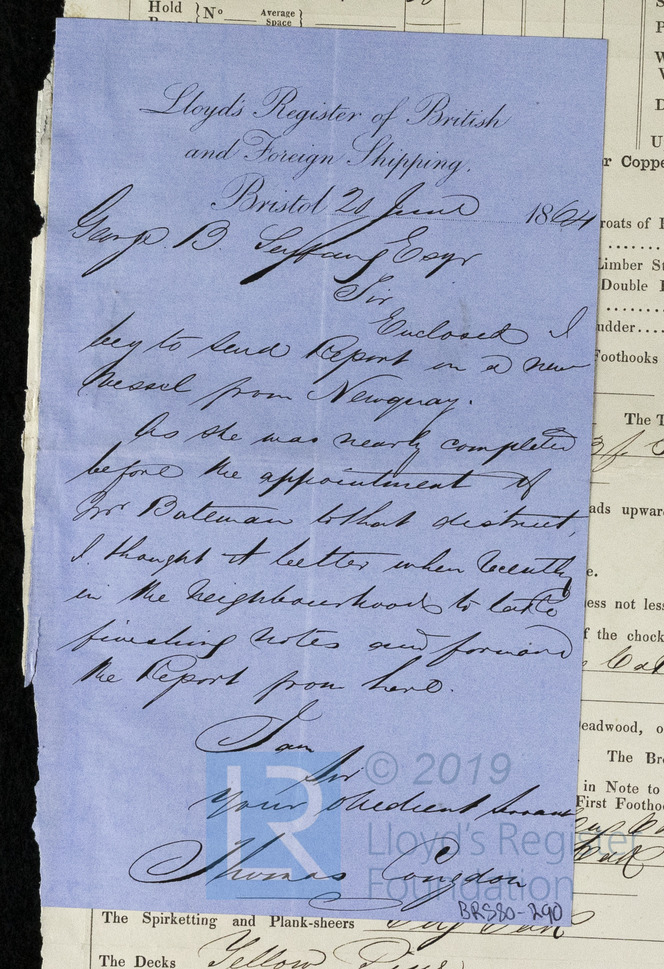 Hold
Nº
Average
Space
Lloyd's Register of British
and Foreign Shipping.
Bristol 20 June 1864
George B. Seyfang Esqr
Sir
Enclosed I
beg to send Report on a new
Vessel from Newquay.
As she was nearly completed
before the appointment of
Mr Bateman to that district,
I thought it better when recently
in the neighbourhood to take
finishing notes and forward
the Report from here.
I am
Sir
Your obedient Servant
Thomas Congdon
© 2019
LR
Lloyd's Register
Foundation
BRS80-290
r Coppe
roats of
Limber St
Double
udder....
Foothooks
The T
ads upwar
e.
less not less
f the chock
Deadwood, o
The Bre
in Note to
First Footho
The Spirketting and Plank-sheers
The Decks Yellow Pine